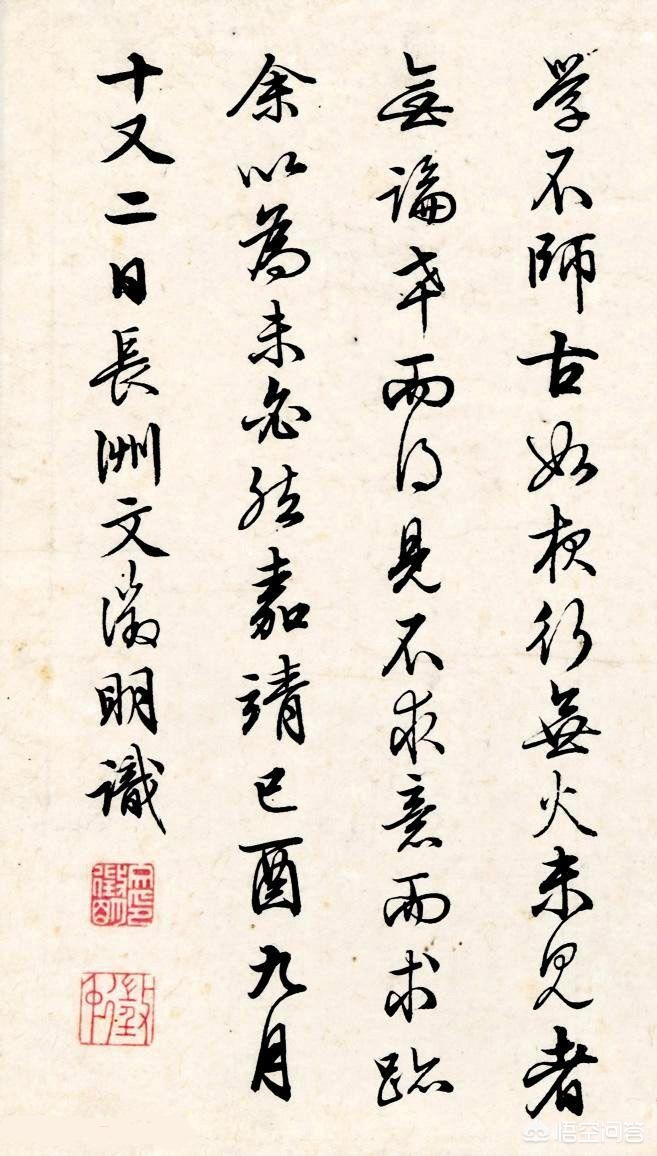 學不師古如夜行無火未見者
無論幸而得見不求意而求跡
余以為未必然嘉靖己酉九月
十又二日長洲文徵明識
悟空问答